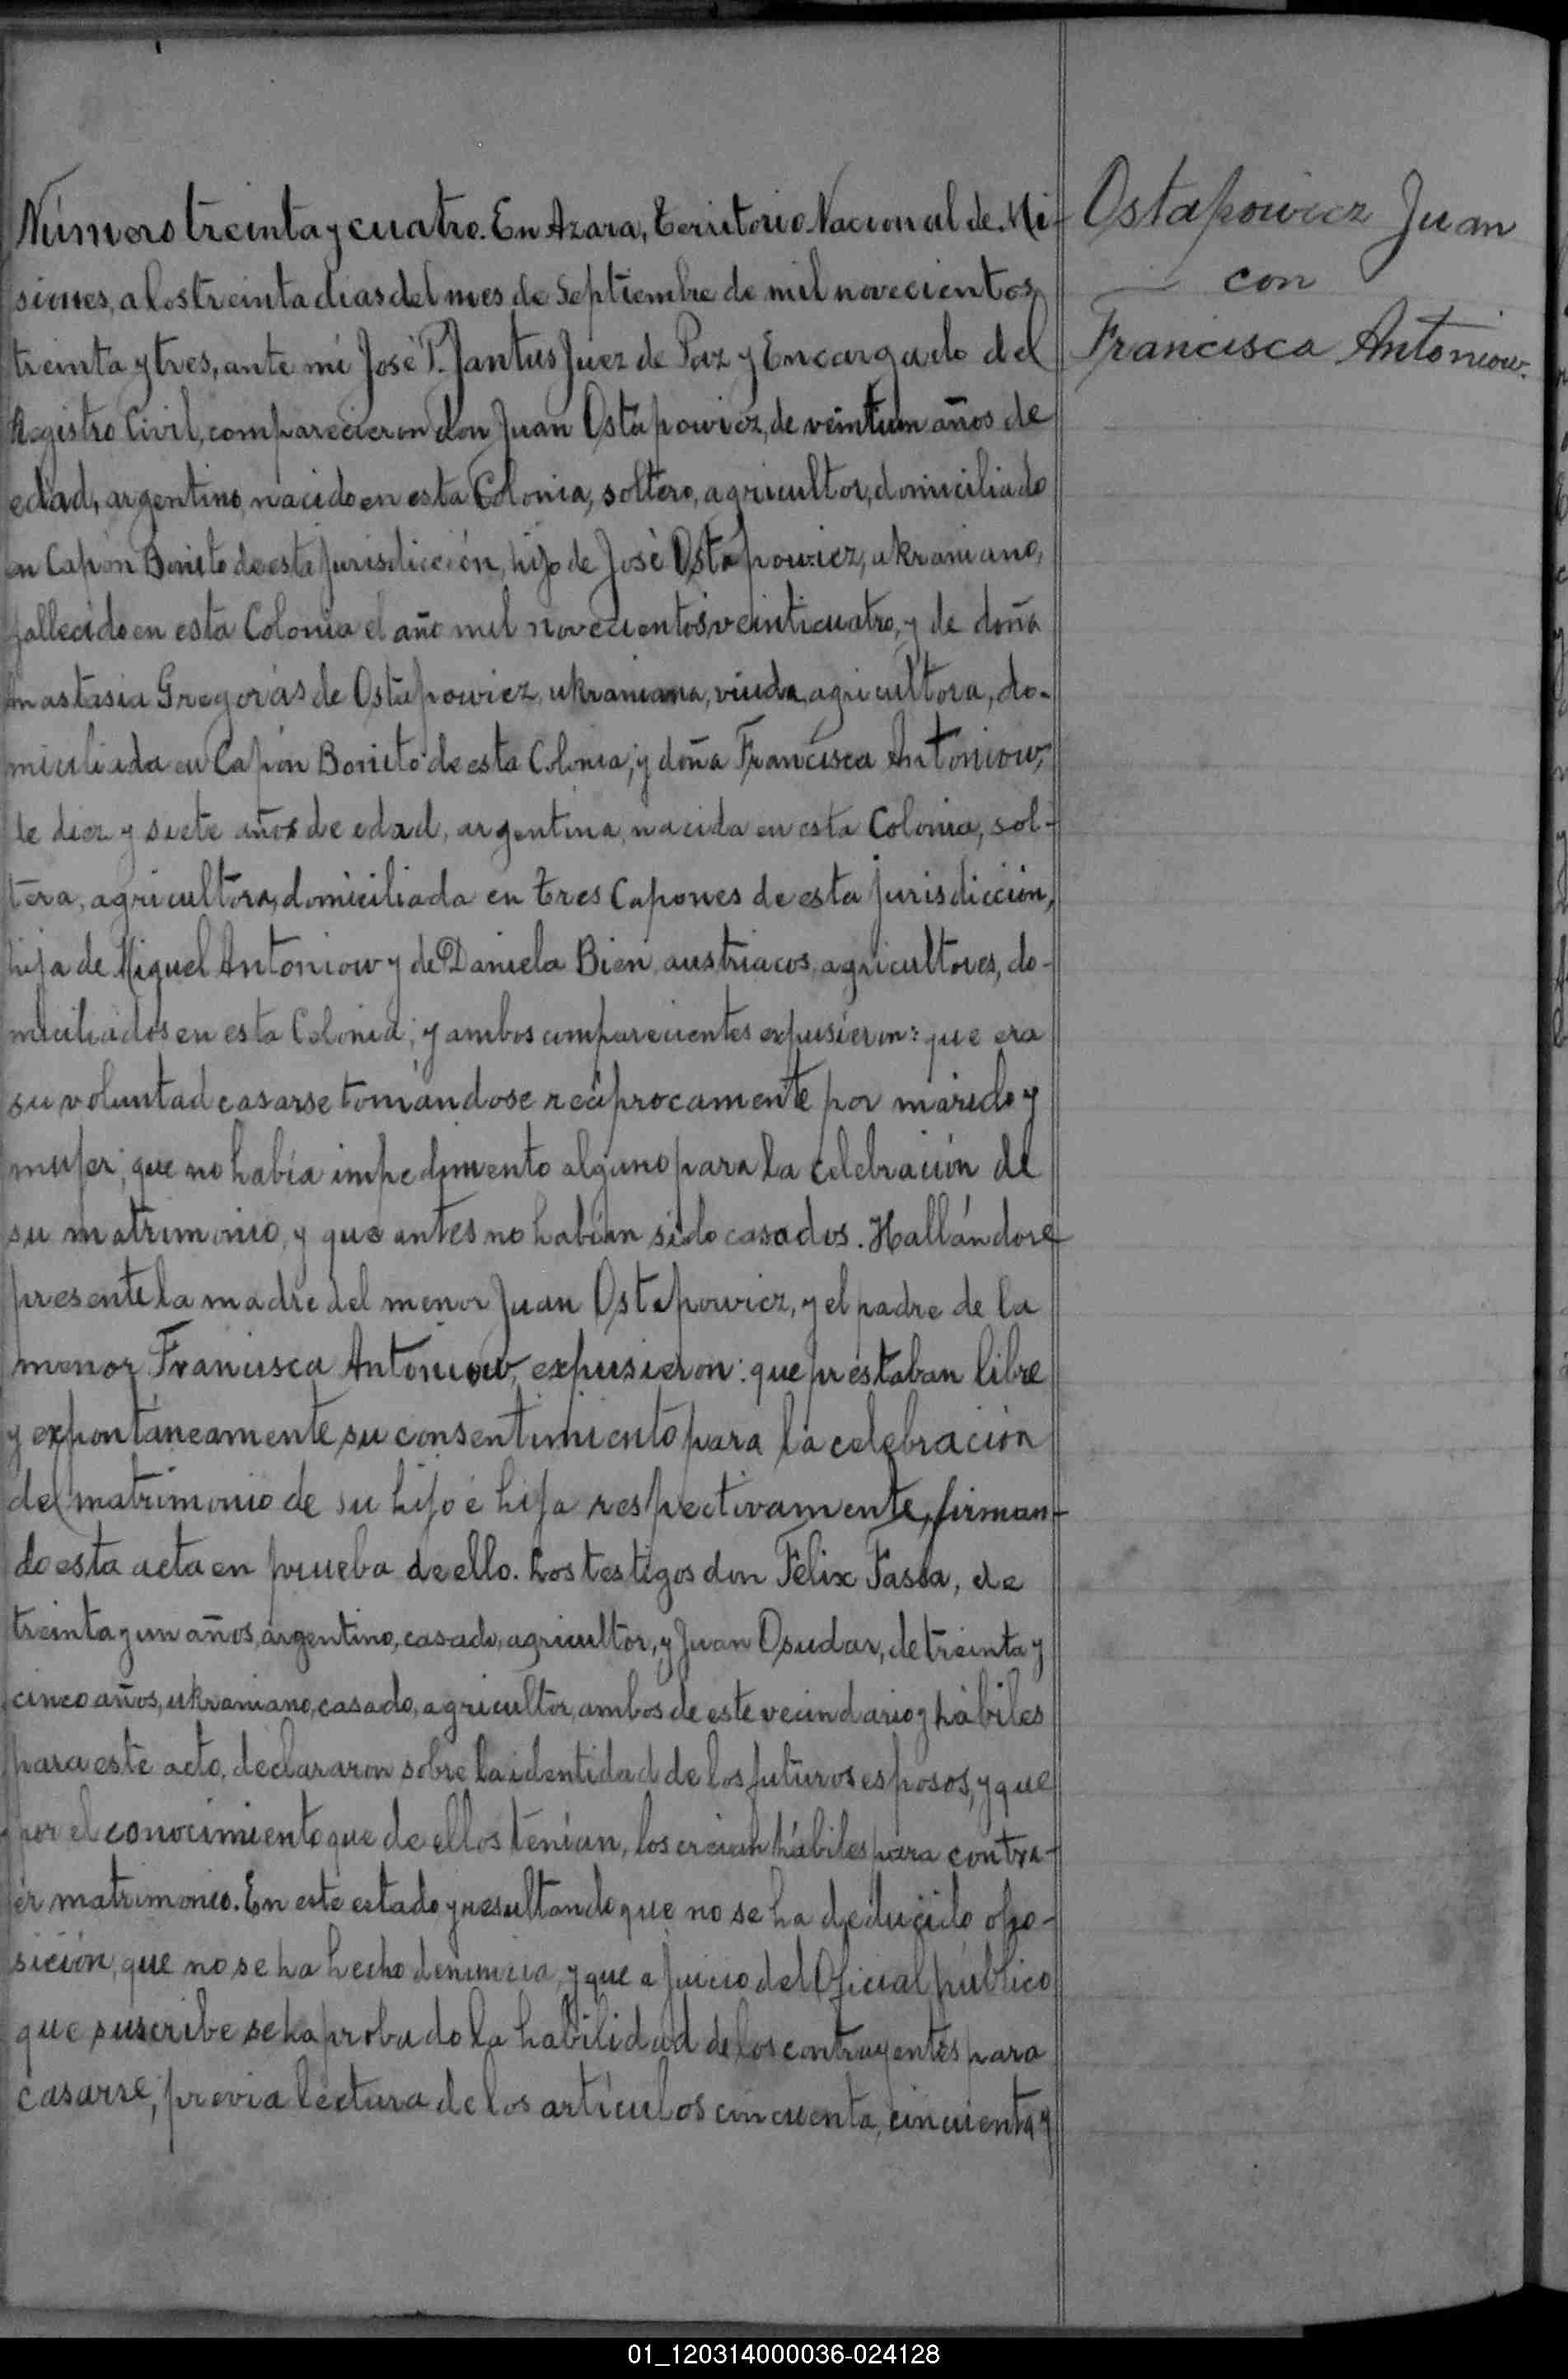 Número treinta y cuatro. En Azara, Territorio Nacional de Mi-
siones, a los treinta dias del mes de Septiembre de mil novecientos
treinta y tres, ante mi José P. Jantus Juez de Paz y Encargado del
Registro Civil, comparecieron don Juan Ostapowicz, de veintiun años de
edad, argentino, nacido en esta Colonia, soltero, agricultor, domiciliado
en Capón Bonito de esta jurisdicción, hijo de José Ostapowicz, ukraniano,
fallecido en esta Colonia el año mil novecientos veinticuatro, y de doña
Anastasia Gregorás de Ostapowicz, ukraniana, viuda, agricultora, do-
miciliada en Capón Bonito de esta Colonia; y doña Francisca Antoniow,
de diez y siete años de edad, argentina, nacida en esta Colonia, sol-
tera, agricultora, domiciliada en Tres Capones de esta jurisdicción,
hija de Miguel Antoniow y de Daniela Bien, austriacos, agricultores, do-
miciliados en esta Colonia; y ambos comparecientes expusieron: que era
su voluntad casarse tomándose reciprocamente por marido y
mujer; que no había impedimento alguno para la celebración de
su matrimonio, y que antes no habían sido casados. Hallándose
presente la madre del menor Juan Ostapowicz, y el padre de la
menor Francisca Antoniow, expusieron: que prestaban libre
y expontáneamente su consentimiento para la celebración
del matrimonio de su hijo é hija respectivamente, firman-
do esta acta en prueba de ello. Los testigos don Félix Fassa, de
treinta y un años, argentino, casado, agricultor, y Juan Osudar, de treinta y
cinco años, ukraniano, casado, agricultor, ambos de este vecindario y hábiles
para este acto, declararon sobre la identidad de los futuros esposos, y que
por el conocimiento que de ellos tenían, los creían hábiles para contra-
er matrimonio. En este estado y resultando que no se ha deducido opo-
sición, que no se ha hecho denuncia, y que a juicio del Oficial público
que suscribe se ha probado la habilidad de los contrayentes para
casarse, previa lectura de los artículos cincuenta, cincuenta y
Ostapowicz Juan
con
Francisca Antoniow.
01_120314000036-024128